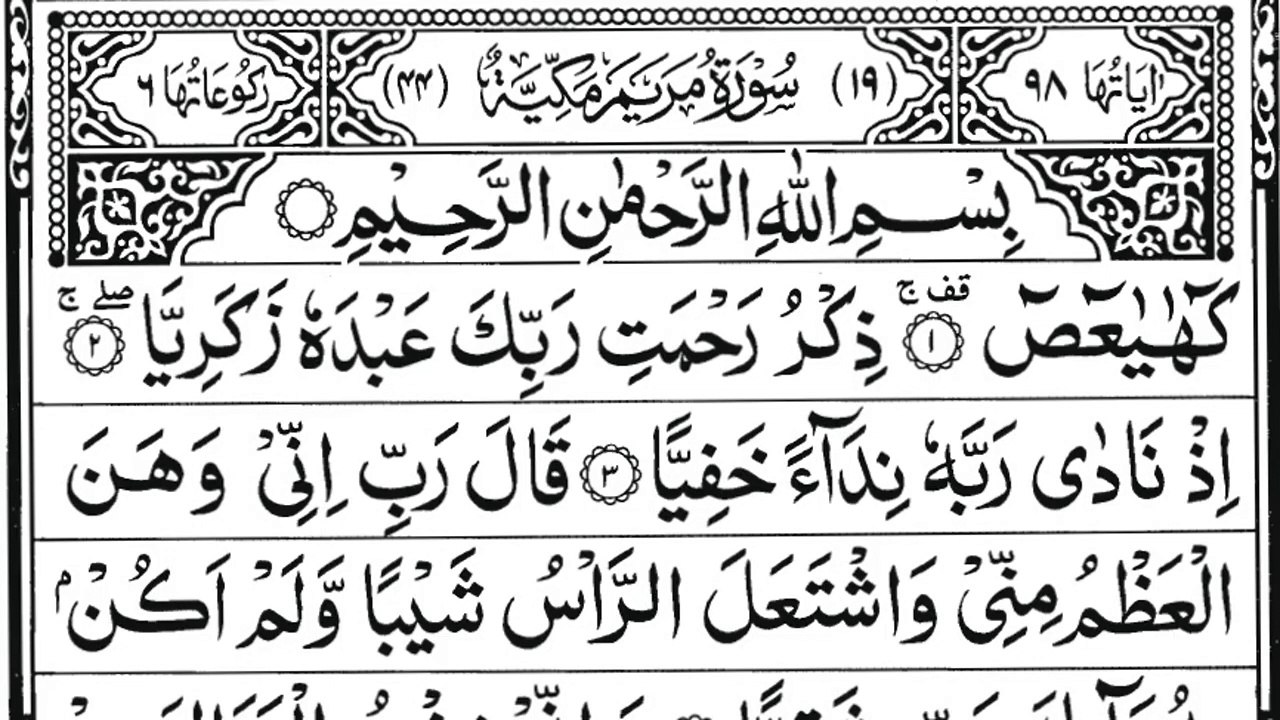 اٰيَاتُهَا ٩٨ (١٩) سُوْرَةُ مَرْيَمَ مَكِّيَّةٌ (٤٤) رُكُوْعَاتُهَا ٦
بِسْمِ اللّٰهِ الرَّحْمٰنِ الرَّحِيْمِ
كٓهٰيٰعٓصٓ ١ قف ج ذِكْرُ رَحْمَتِ رَبِّكَ عَبْدَهٗ زَكَرِيَّا ٢ صلے ج
اِذْ نَادٰى رَبَّهٗ نِدَآءً خَفِيًّا ٣ قَالَ رَبِّ اِنِّيْ وَهَنَ
الْعَظْمُ مِنِّيْ وَاشْتَعَلَ الرَّاْسُ شَيْبًا وَّلَمْ اَكُنْۢ